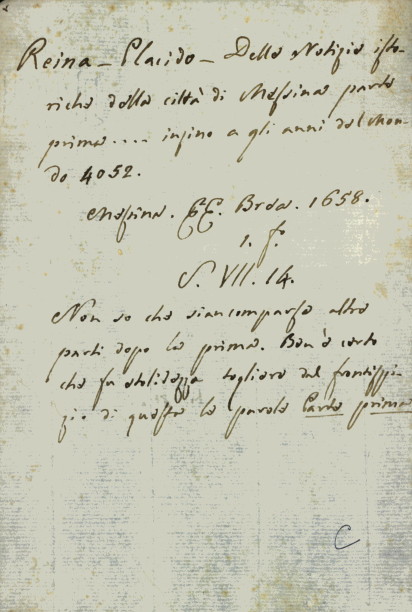 Reina - Placido - Delle Notizie isto-
riche della città di Messina parte
prima.... infino a gli anni del Mon-
do 4052.
Messina. EE. Brea. 1658.
1. f.º
S. VII. 14.
Non so che siancomparse altre
parti dopo la prima. Ben'è certo
che fu stolidezza togliere dal frontispi-
zio di questa le parole Parte prima
C